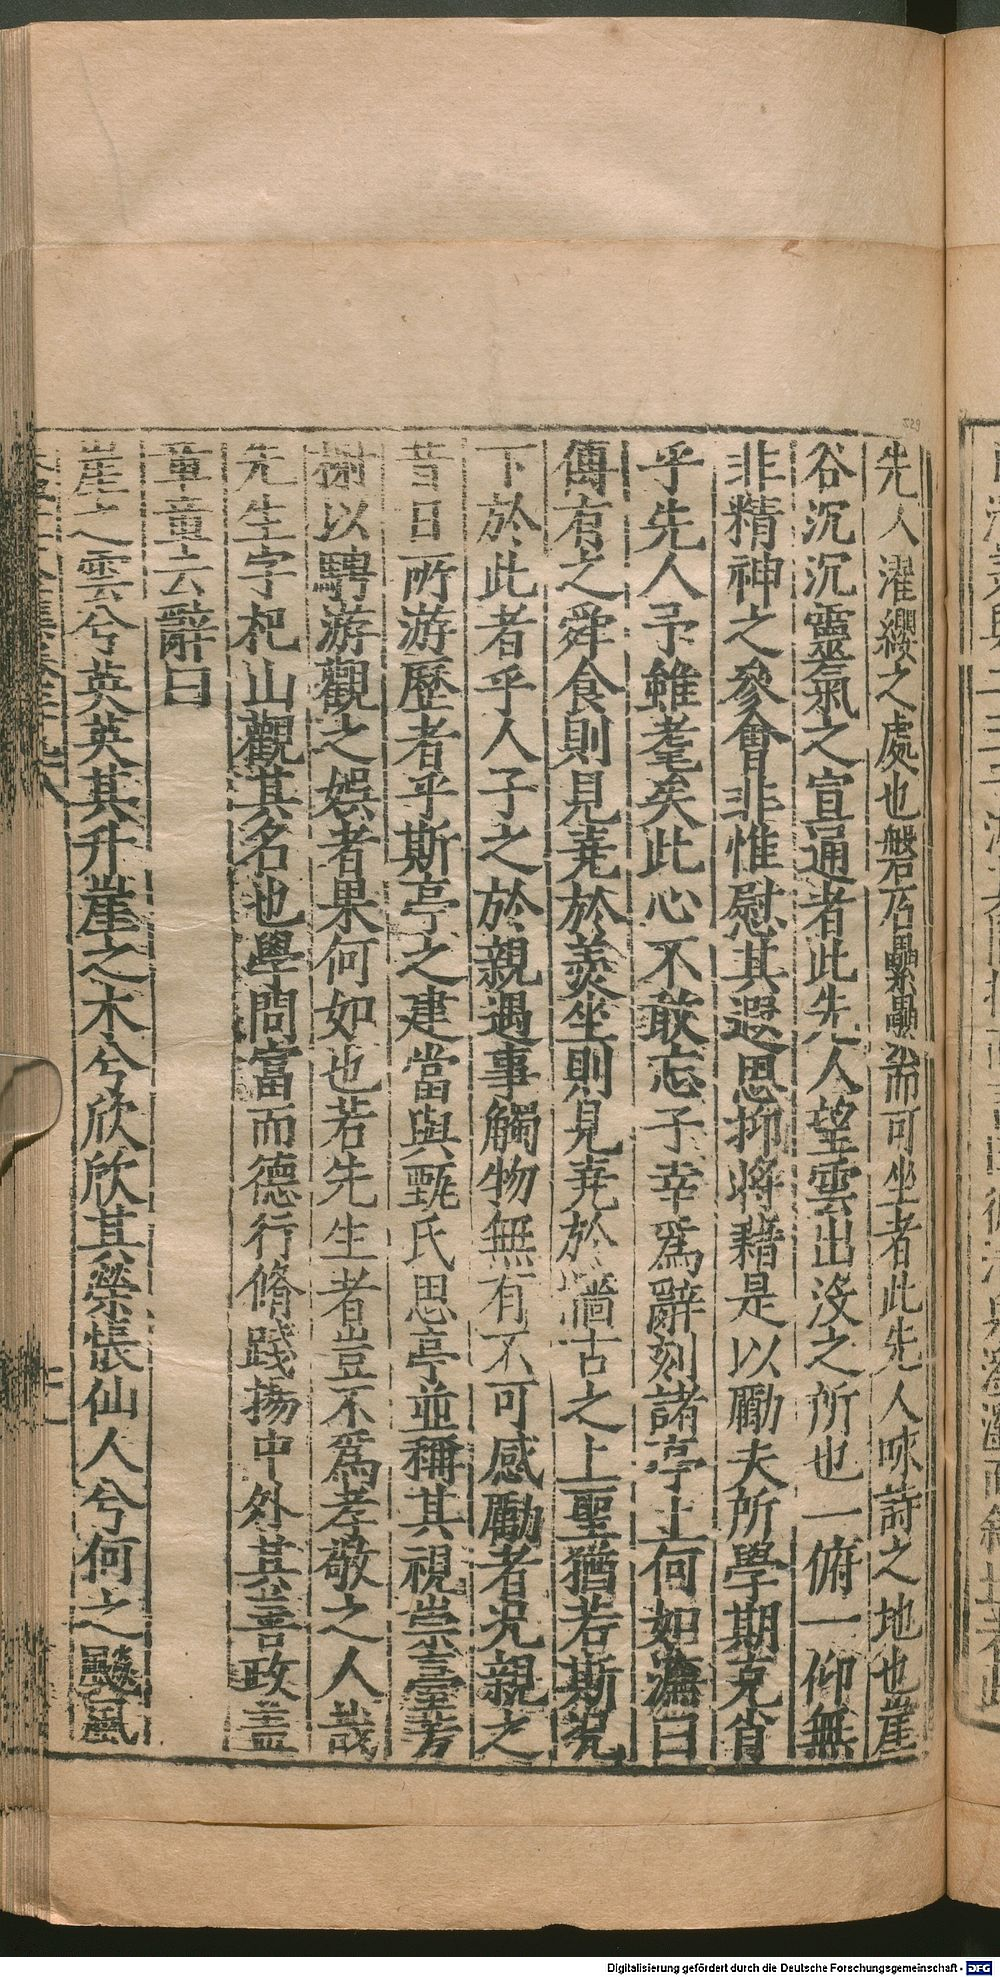 先人濯纓之處也磐石纍纍而可坐者此先人咏詩之地也崖
谷沉沉靈氣之宣通者此先人望雲出沒之所也一俯一仰無
非精神之參會非惟慰其遐思抑將藉是以勵夫所學期克肖
乎先人予雖耄矣此心不敢忘子幸爲辭刻諸亭上何如瀹曰
傳有之舜食則見堯於羹坐則見堯於墻古之上聖猶若斯况
下於此者乎人子之於親遇事觸物無有不可感勵者况親之
昔日所游歷者乎斯亭之建當與甄氏思亭並稱其視崇臺芳
榭以騁游觀之娛者果何如也若先生者豈不爲孝敬之人哉
先生字杞山觀其名也學問富而德行脩踐揚中外其善政蓋
章章云辭曰
崖之雲兮英英其升崖之木兮欣欣其榮悵仙人兮何之颷風
Digitalisierung gefördert durch die Deutsche Forschungsgemeinschaft - DFG